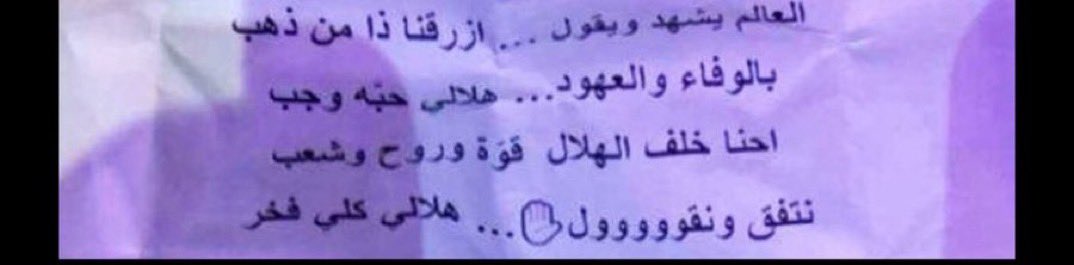 العالم يشهد ويقول ... ازرقنا ذا من ذهب
بالوفاء والعهود... هلالي حبّه وجب
احنا خلف الهلال قوّة وروح وشعب
نتفق ونقوووول✋... هلالي كلي فخر